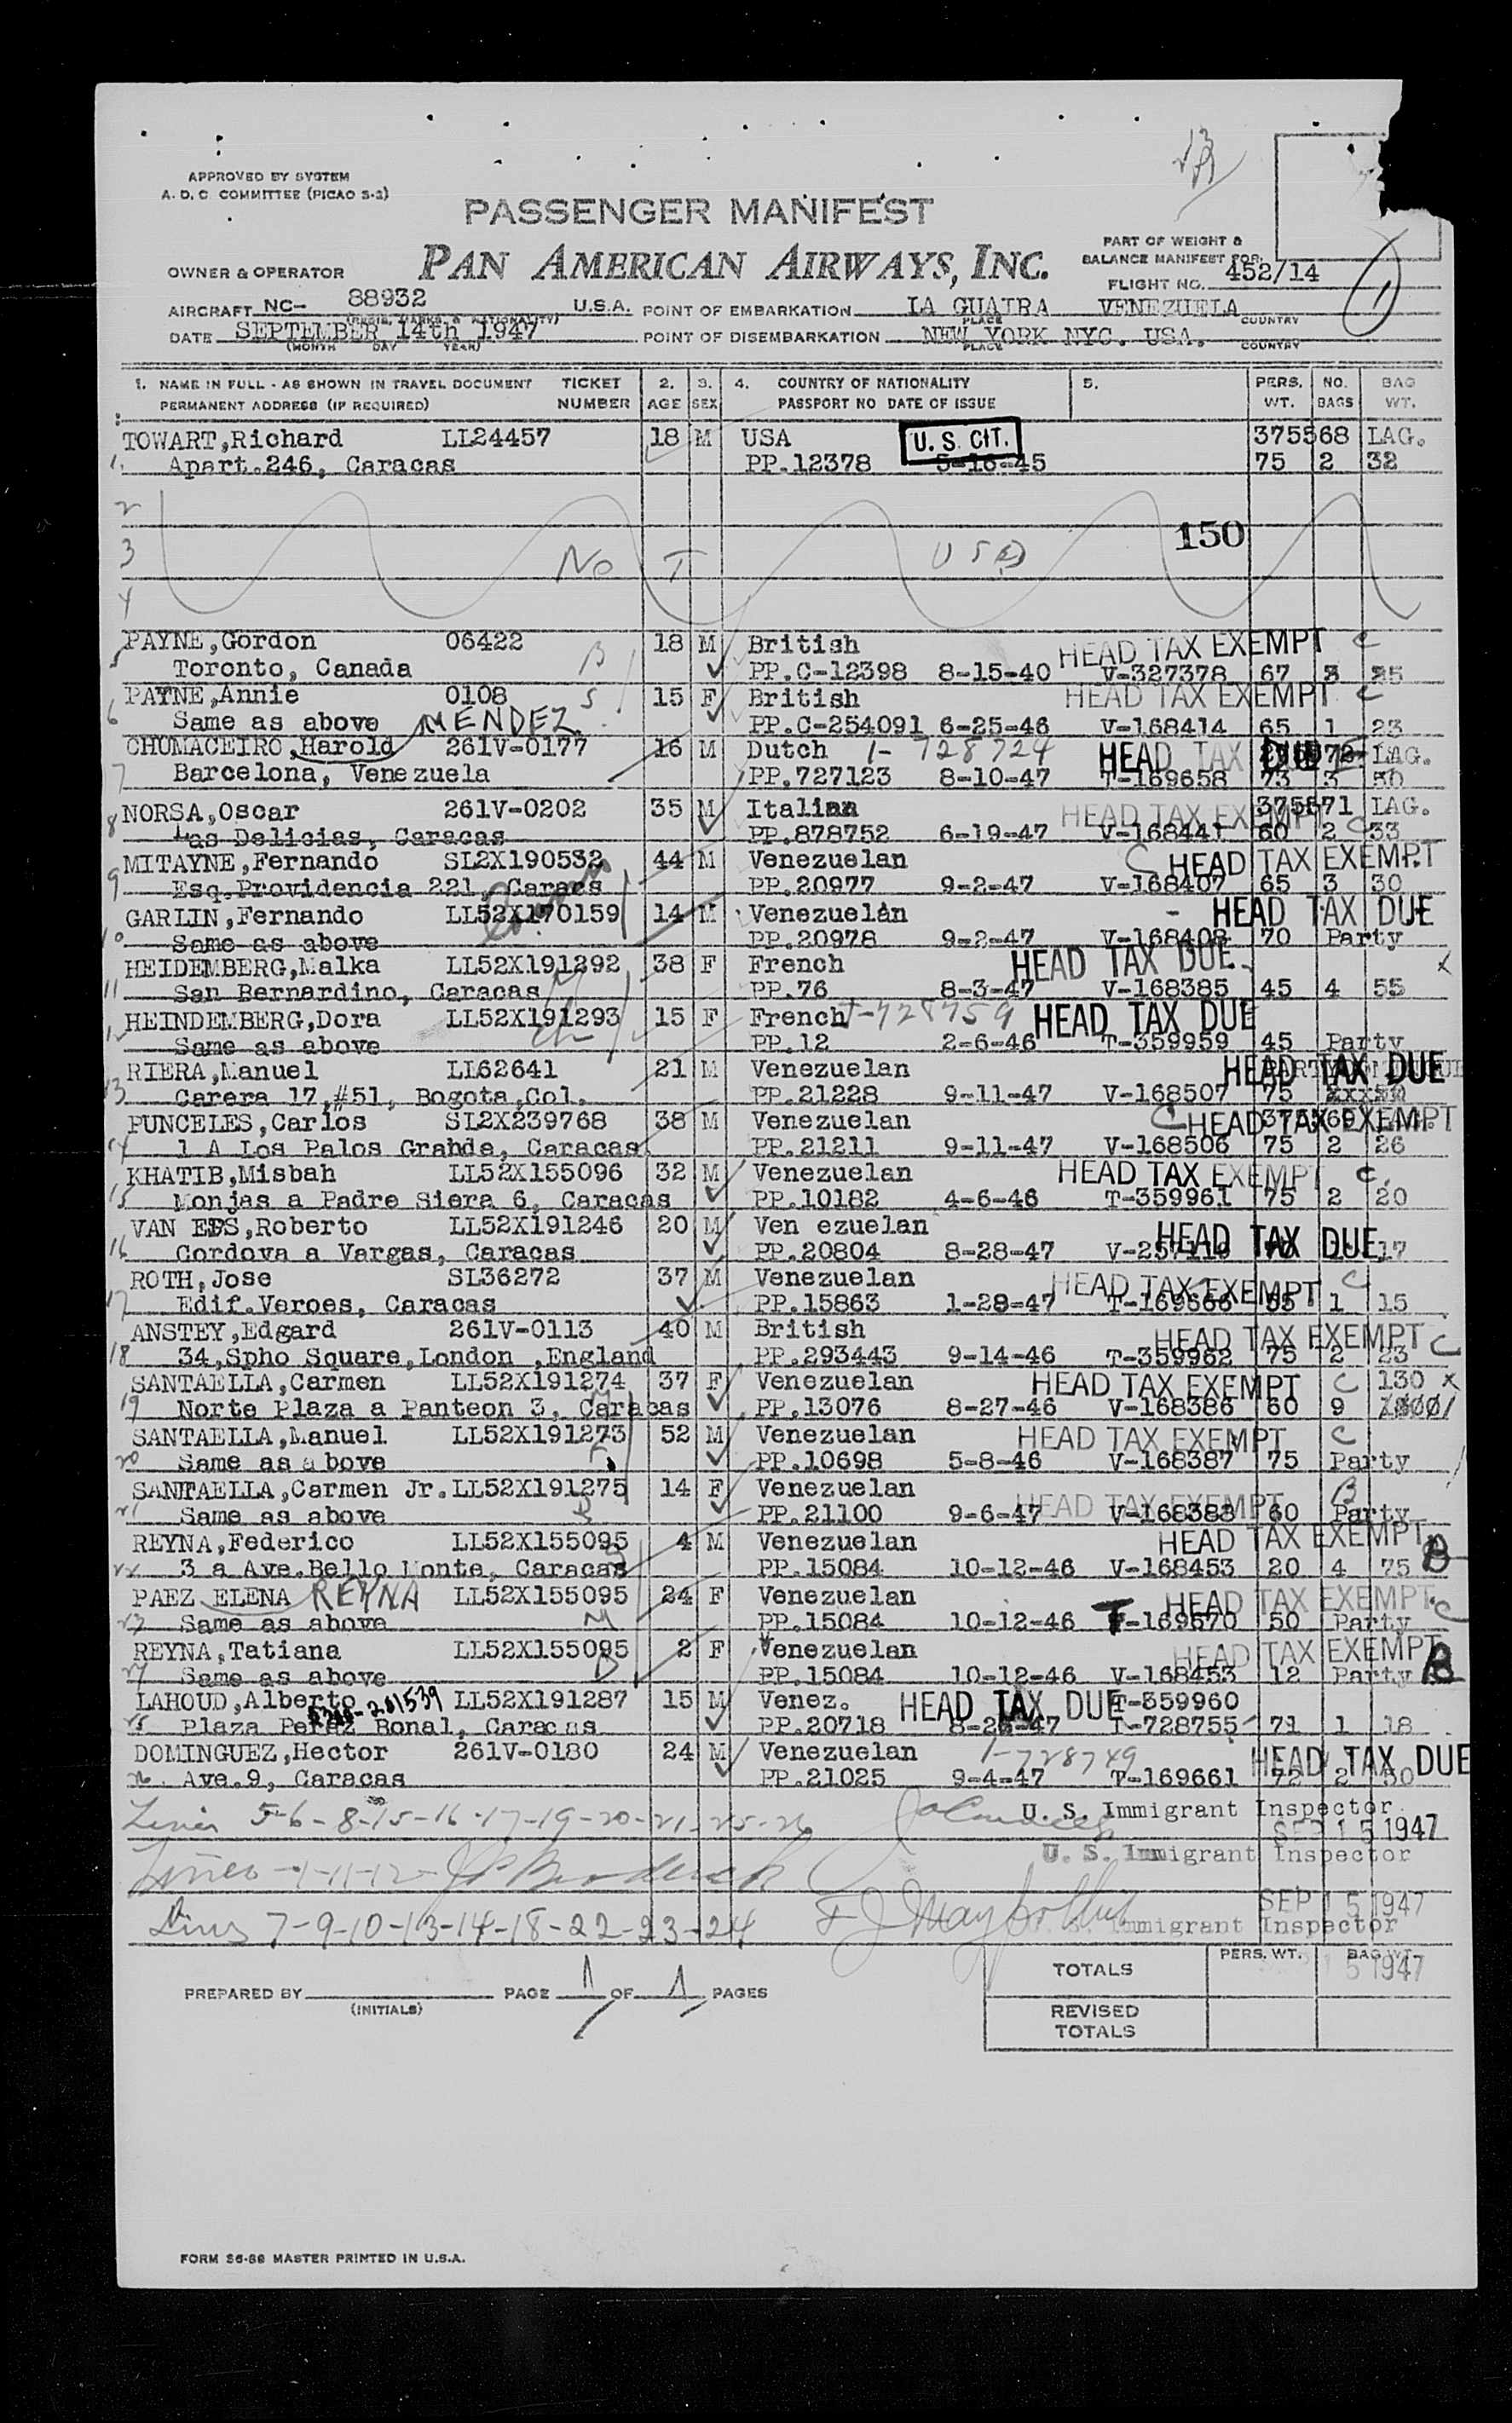 APPROVED BY SYSTEM
A. D. C. COMMITTEE (PICAO S-2)
PASSENGER MANIFEST
PAN AMERICAN AIRWAYS, INC.
OWNER & OPERATOR
PART OF WEIGHT &
BALANCE MANIFEST FOR
FLIGHT NO. 452/14
1
AIRCRAFT NC- 88932 U.S.A. POINT OF EMBARKATION LA GUAIRA VENEZUELA
(REGIS. MARKS & NATIONALITY) PLACE COUNTRY
DATE SEPTEMBER 14th 1947 POINT OF DISEMBARKATION NEW YORK NYC. USA.
(MONTH DAY YEAR) PLACE COUNTRY
1. NAME IN FULL - AS SHOWN IN TRAVEL DOCUMENT TICKET 2. 3. 4. COUNTRY OF NATIONALITY 5. PERS. NO. BAG
PERMANENT ADDRESS (IF REQUIRED) NUMBER AGE SEX PASSPORT NO DATE OF ISSUE WT. BAGS WT.
TOWART,Richard LL24457 18 M USA U. S. CIT. 375568 LAG.
1. Apart.246, Caracas PP.12378 5-16-45 75 2 32
2
3 No T USA 150
4
PAYNE,Gordon 06422 18 M British HEAD TAX EXEMPT C
5 Toronto, Canada B PP.C-12398 8-15-40 V-327378 67 3
PAYNE,Annie 0108 S 15 F British HEAD TAX EXEMPT C
6 Same as above MENDEZ PP.C-254091 6-25-46 V-168414 65 1 23
CHUMACEIRO,Harold 261V-0177 16 M Dutch 1-728724 HEAD TAX DUE LAG.
7 Barcelona, Venezuela PP.727123 8-10-47 T-169658 73 3 50
8 NORSA,Oscar 261V-0202 35 M Italian HEAD TAX EXEMPT 375571 LAG.
Las Delicias, Caracas PP.878752 6-19-47 V-168441 60 2 C 33
9 MITAYNE,Fernando SL2X190532 44 M Venezuelan C HEAD TAX EXEMPT
Esq.Providencia 221, Caracs PP.20977 9-2-47 V-168407 65 3 30
GARLIN,Fernando LL52X170159 14 M Venezuelan - HEAD TAX DUE
10 Same as above PP.20978 9-2-47 V-168408 70 Party
HEIDEMBERG,Malka LL52X191292 38 F French HEAD TAX DUE x
11 San Bernardino, Caracas PP.76 8-3-47 V-168385 45 4 55
HEINDEMBERG,Dora LL52X191293 15 F French HEAD TAX DUE
12 Same as above PP.12 2-6-46 T-359959 45 Party
RIERA,Manuel LL62641 21 M Venezuelan HEAD TAX DUE
13 Carera 17,#51, Bogota,Col. PP.21228 9-11-47 V-168507 75
PUNCELES,Carlos SL2X239768 38 M Venezuelan C HEAD TAX EXEMPT
14 1 A Los Palos Grande, Caracas PP.21211 9-11-47 V-168506 75 2 26
KHATIB,Misbah LL52X155096 32 M Venezuelan HEAD TAX EXEMPT C.
15 Monjas a Padre Siera 6, Caracas PP.10182 4-6-46 T-359961 75 2 20
VAN EPS,Roberto LL52X191246 20 M Ven ezuelan HEAD TAX DUE
16 Cordova a Vargas, Caracas PP.20804 8-28-47 17
ROTH,Jose SL36272 37 M Venezuelan HEAD TAX EXEMPT C
17 Edif.Veroes, Caracas PP.15863 1-28-47 T-169666 1 15
ANSTEY,Edgard 261V-0113 40 M British HEAD TAX EXEMPT C
18 34,Spho Square,London ,England PP.293443 9-14-46 T-359962 75 2 23
SANTAELLA,Carmen LL52X191274 37 F Venezuelan HEAD TAX EXEMPT C 130 x
19 Norte Plaza a Panteon 3, Caracas PP.13076 8-27-46 V-168386 60 9
SANTAELLA,Manuel LL52X191273 52 M Venezuelan HEAD TAX EXEMPT C
20 Same as a bove PP.10698 5-8-46 V-168387 75 Party
SANTAELLA,Carmen Jr. LL52X191275 14 F Venezuelan HEAD TAX EXEMPT B
21 Same as above PP.21100 9-6-47 V-168388 60 Party
REYNA,Federico LL52X155095 4 M Venezuelan HEAD TAX EXEMPT B
22 3 a Ave.Bello Monte, Caracas PP.15084 10-12-46 V-168453 20 4 75
PAEZ ELENA REYNA LL52X155095 24 F Venezuelan HEAD TAX EXEMPT C
23 Same as above M PP.15084 10-12-46 T-169670 50 Party
REYNA,Tatiana LL52X155095 2 F Venezuelan HEAD TAX EXEMPT B
24 Same as above PP.15084 10-12-46 V-168453 12 Party
LAHOUD,Alberto LL52X191287 15 M Venez. HEAD TAX DUE T-359960
25 Plaza Perez Bonal, Caracas PP.20718 8-26-47 T-728755 71 1 18
DOMINGUEZ,Hector 261V-0180 24 M Venezuelan 1-728749 HEAD TAX DUE
26. Ave.9, Caracas PP.21025 9-4-47 T-169661 72 2 50
Lines 5-6-8-15-16-17-19-20-21-25-26 U. S. Immigrant Inspector
SEP 15 1947
Lines -1-11-12- U. S. Immigrant Inspector
SEP 15 1947
Lines 7-9-10-13-14-18-22-23-24 Immigrant Inspector
15 1947
PERS. WT. BAG WT.
TOTALS
PREPARED BY PAGE 1 OF 1 PAGES
(INITIALS)
REVISED
TOTALS
FORM 36-89 MASTER PRINTED IN U.S.A.